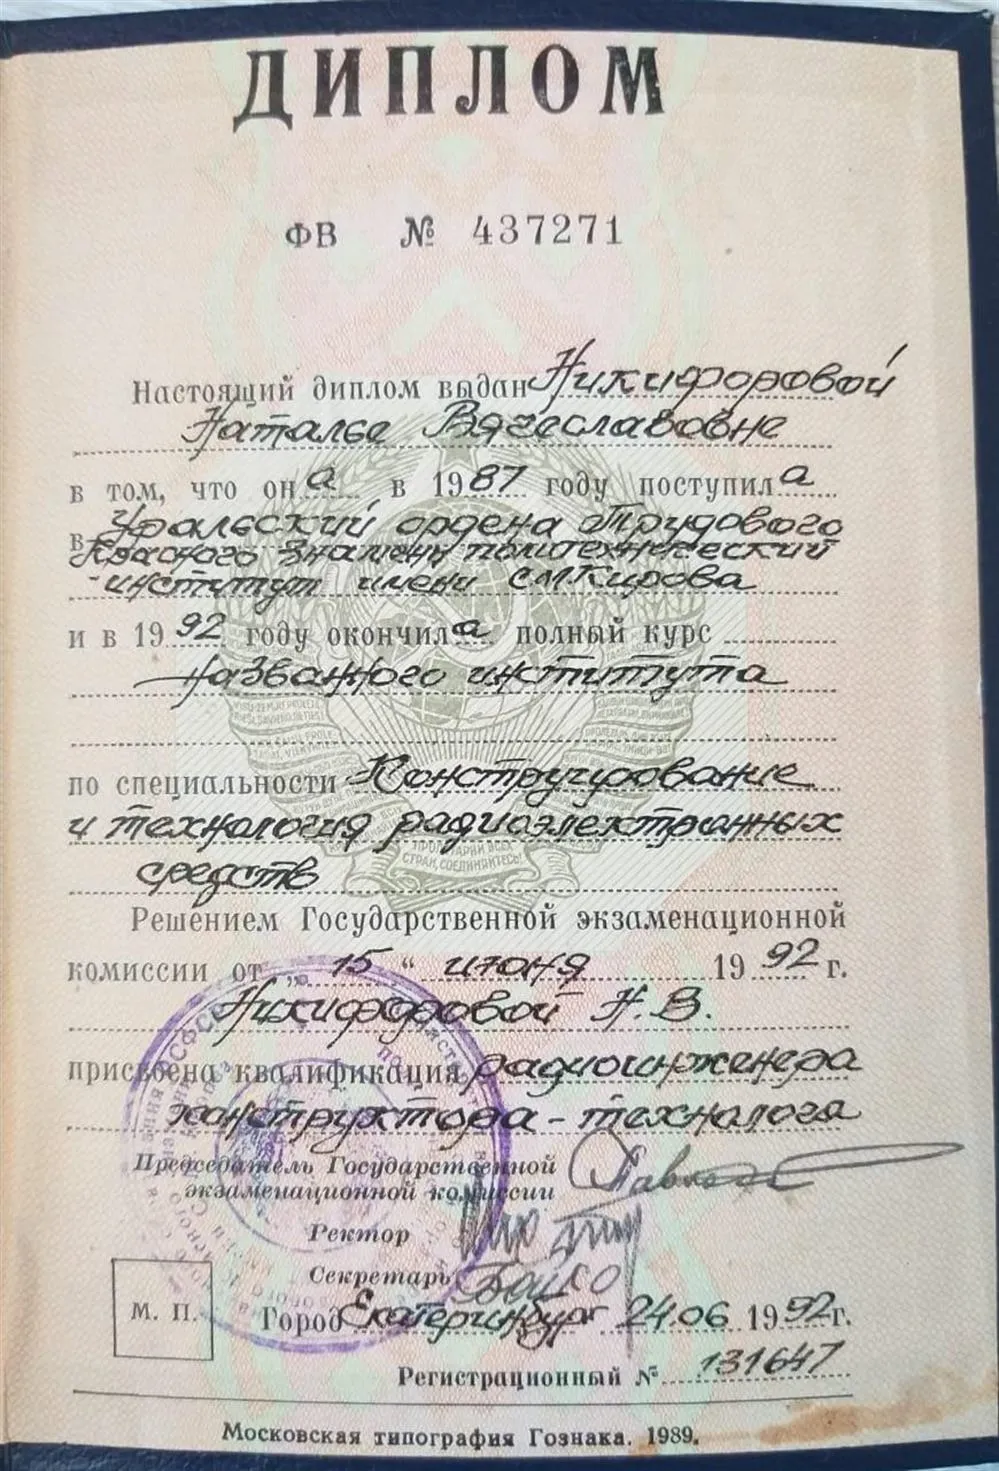 ДИПЛОМ
ФВ № 437271
Настоящий диплом выдан Никифоровой
Наталье Вячеславовне
в том, что она в 1987 году поступила
в Уральский ордена Трудового
Красного Знамени политехнический
институт имени С.М.Кирова
и в 1992 году окончила полный курс
названного института
по специальности Конструирование
и технология радиоэлектронных
средств
ПРОЛЕТАРИИ ВСЕХ
СТРАН, СОЕДИНЯЙТЕСЬ!
Решением Государственной экзаменационной
комиссии от „ 15 “ июня 1992 г.
Никифоровой Н.В.
присвоена квалификация радиоинженера
конструктора - технолога
Председатель Государственной
экзаменационной комиссии
Ректор
Секретарь Бойко
М. П.
Город Екатеринбург 24.06 1992г.
Регистрационный № 131647
Московская типография Гознака. 1989.